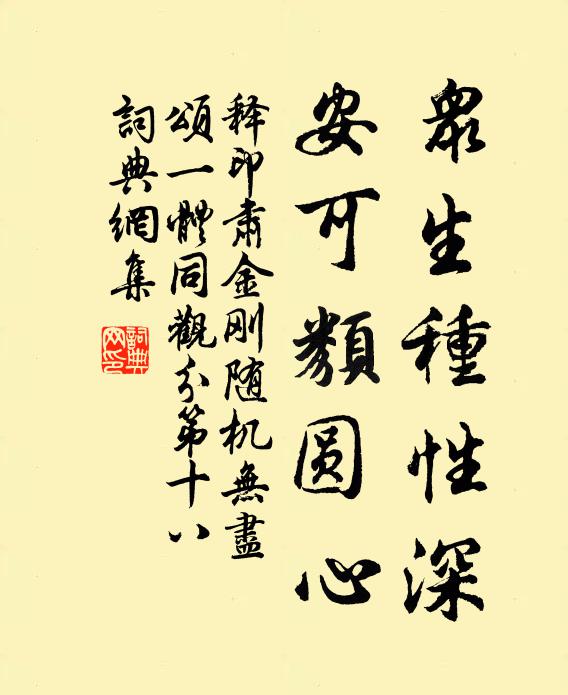 眾生種性深
安可類圓心
释印肃金刚随机無盡
頌一體同觀分第十八
詞典網集
詞典網印